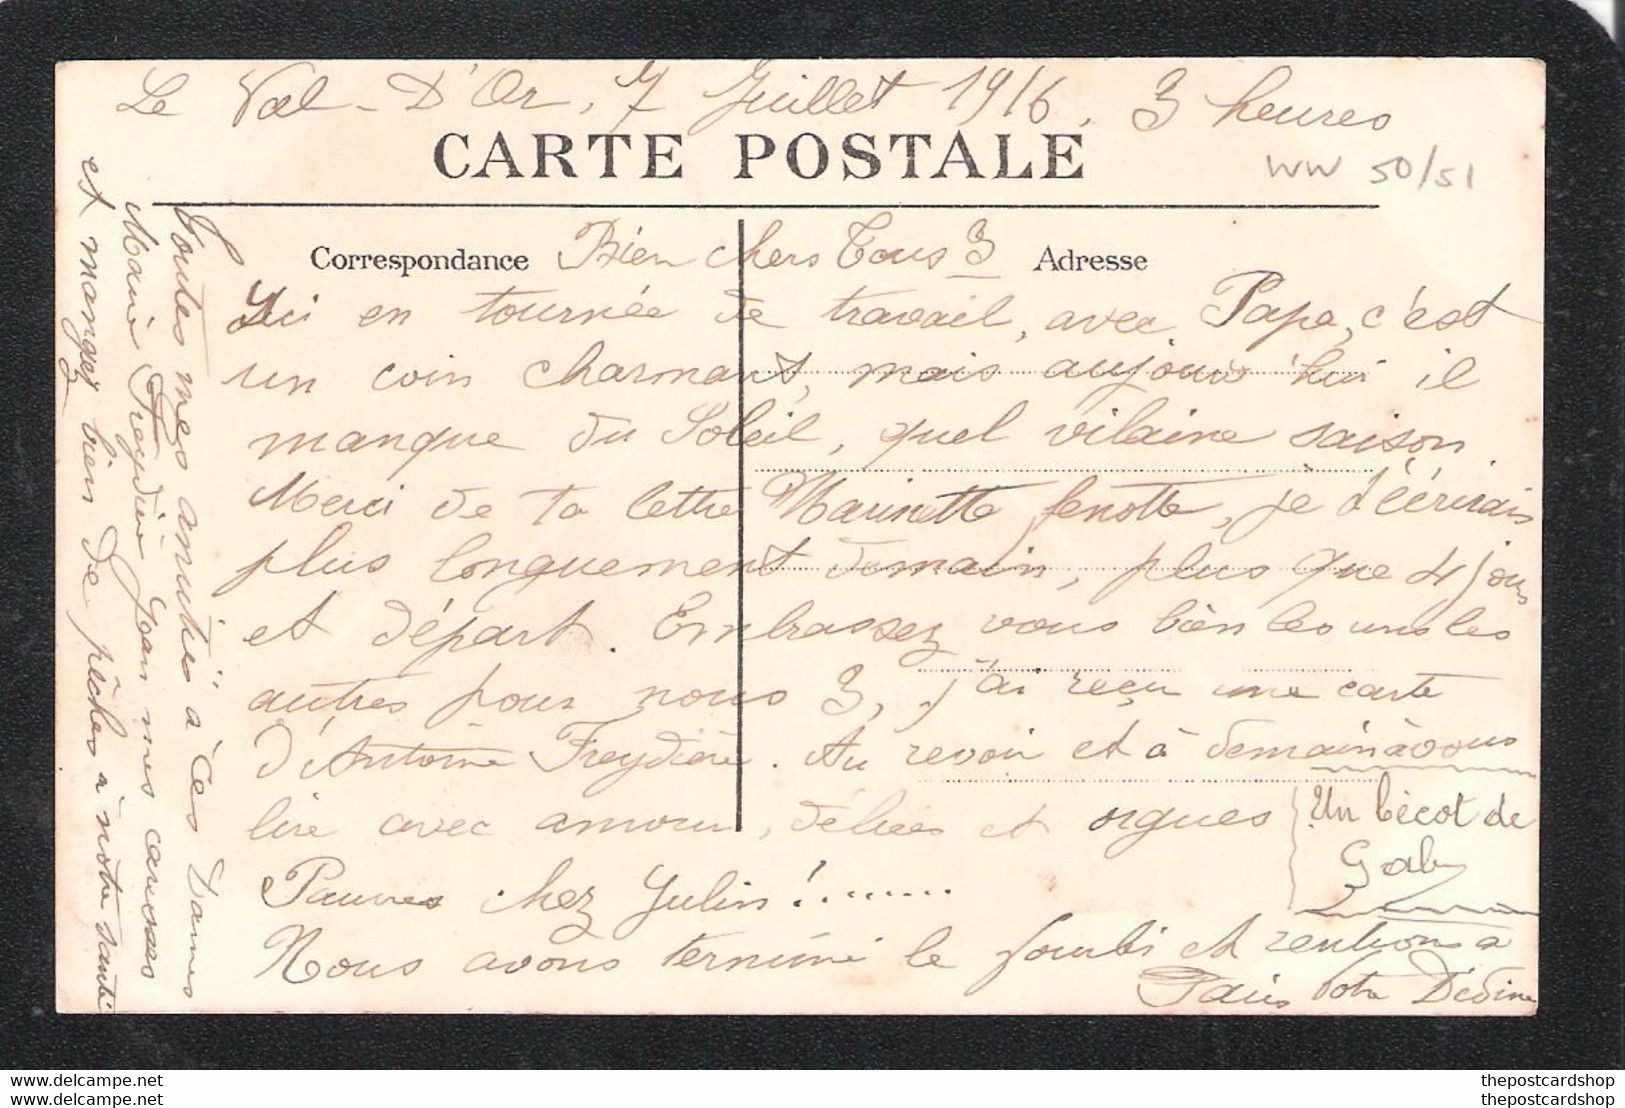 Le Val-D'Or, 7 Juillet 1916, 3 heures
CARTE POSTALE
WW 50/51
Correspondance Bien chers Tous 3 Adresse
Ici en tournée de travail, avec Papa, c'est
un coin charmant, mais aujourd'hui il
manque du Soleil, quel vilaine saison
Merci de ta lettre Marinette, je t'écrirais
plus longuement demain, plus que 4 jours
et départ. Embrassez vous bien les uns les
autres pour nous 3, j'ai reçu une carte
d'Antoine Freydière. Au revoir et à demain à vous
lire avec amour, délices et orgues
Un bécot de
Gaby
Pauvres chez Julin!........
Nous avons terminé le fourbi et rentrons à
Paris Votre Dédine
Toutes mes amitiés à ces Dames
Mairie Freydière Jean mes caresses
et mangez bien de pêches à notre santé
www.delcampe.net
postcard
thepostcardshop
thepostcardshop